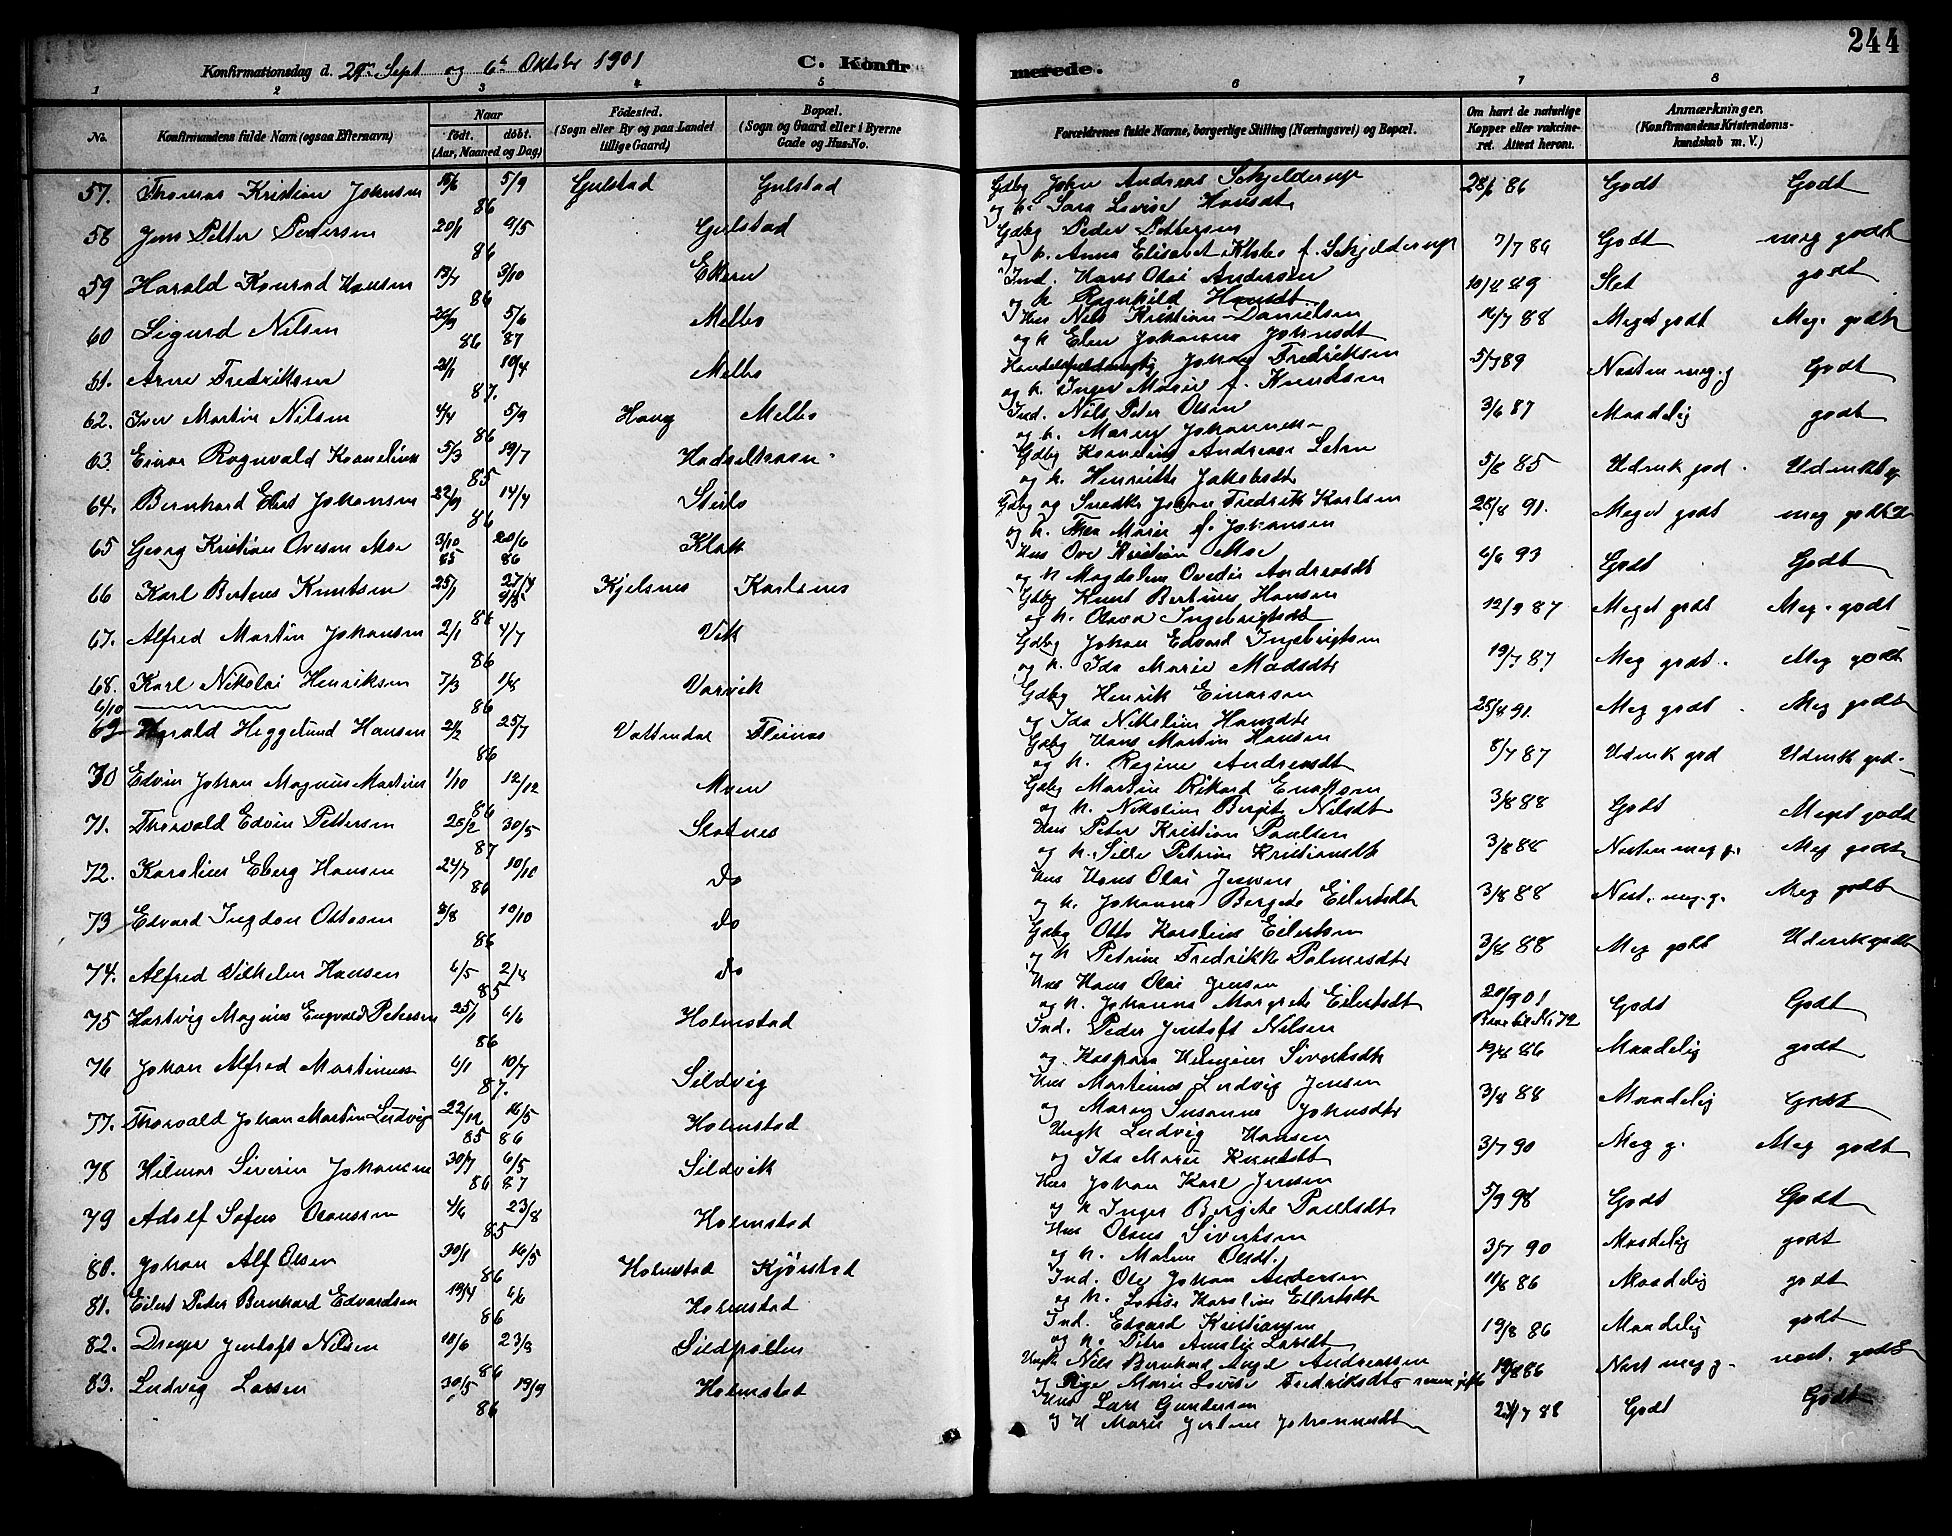 244
Konfirmationsdag d. 29de Sept og 6te Oktober 1901 C. Konfirmerede.
1 2 3 4 5 6 7 8
No.
Konfirmandens fulde Navn (ogsaa Efternavn)
Naar
født. døbt.
(Aar, Maaned og Dag)
Fødested.
(Sogn eller By og paa Landet
tillige Gaard)
Bopæl.
(Sogn og Gaard eller i Byerne
Gade og Hus-No.
Forældrenes fulde Navne, borgerlige Stilling (Næringsvei) og Bopæl.
Om havt de naturlige
Kopper eller vakcine-
ret. Attest herom.
Anmærkninger.
(Konfirmandens Kristendoms-
kundskab m. V.)
57. Thomas Kristian Johnsen 15/6 5/9 86 Gulstad Gulstad Gdbg John Andreas Schjelderup 28/6 86 Godt Godt
og h. Sara Lovise Hansdt
58 Jens Petter Pedersen 20/1 9/5 86 Gulstad Gdbg Peder Pettersen 7/7 86 Godt meg godt
og h. Anna Elisabet Klæbo f. Schjelderup
59 Harald Konrad Hansen 13/7 3/10 86 Ekern Ind. Hans Olai Andersen 10/4 89 Slet godt
og h Ragnhild Hansdt
60 Sigurd Nilsen 26/9 5/6 86 87 Melbo Hus Nils Kristian Danielsen 16/7 88 Meget godt Meg. godt
og h Elen Johanna Johnsdt
61. Arne Fredriksen 21/1 10/4 87. Melbo Johan Fredriksen 5/7 89 Næsten meg. g Godt
og h. Inger Marie f. Knudsen
62. Iver Martin Nilsen 4/4 5/9 86 Haug Melbo Ind. Nils Peter Olsen 3/6 87 Maadelig godt
og h. Maren Johannesen
63. Einar Ragnvald Kornelius 5/3 19/7 85 Hadselhavn Gdbg Kornelius Andreas 5/8 85 Udmrk god. Udmrkt g
og h. Henriette Jakobsdt
64. Bernhard Elert Johansen 22/9 14/4 86 Steilo Gdbg og Snedker Johan Fredrik Karlsen 28/8 91. Meget godt meg godt
og h. Thea Marie f. Johansen
65 Georg Kristian Ovesen Moe 3/10 20/6 85 86 Klak Hus Ove Kristian Moe 6/6 93 Godt Godt
og h Magdalena Ovedie Andreasdt
66 Karl Bertnus Knutsen 25/1 27/4 86 Kjelsnes Karlsnes Gdbg Knut Bertinus Hansen 12/9 87 Meget godt Meg. godt
og h. Olava Ingebrigtsdt
67. Alfred Martin Johansen 2/1 4/7 86 Vik Gdbg Johan Edvard Ingebrigtsen 19/7 87 Meg godt. Meg godt
og h. Ida Marie Madsdt
68. Karl Nikolai Henriksen 7/3 1/8 86 Vorvik Gdbg Henrik Einarsen 25/4 91. Meg godt Meg godt
6/10
og Ida Nikoline Hansdt
69 Harald Heggelund Hansen 21/2 25/7 86 Vottendal Fleines Gdbg Hans Martin Hansen 8/7 87 Udmrk god Udmrk god.
og h. Regine Andreasdt
70 Edvin Johan Magnus Martinus 1/10 12/12 86 Moen Gdbg Martin Rikard Enoksen 3/8 88 Godt Meget godt
og h. Nikoline Bergite Nilsdt
71. Thorvald Edvin Pettersen 25/2 30/5 87 Slotnes Hus Peter Kristian Paulsen 3/8 88 Næsten meg g. Meg godt
og h. Silie Petrine Kristiansdt
72. Karolius Eberg Hansen 24/7 10/10 86 Do Hus Hans Olai Jensen 3/8 88 Næst. meg. g. Meg godt
og h. Johanna Bergete Eilertsdt
73 Edvard Ingdon Ottosen 5/8 10/10 86 Do Gdbg Otto Karolius Eilertsen 3/8 88 Meg godt Udmrk godt
og h Petrine Fredrikke Palmesdt
74. Alfred Vilhelm Hansen 6/5 2/8 85 Do Hus Hans Olai Jensen 20/9 01 Godt Godt
og h. Johanna Margrete Eilertsdt Bror til No 72
75 Hartvig Magnus Engvald Petersen 25/1 6/6 86 Holmstad Ind. Peder Jentoft Nilsen 19/8 86 Maadelig godt
og Kaspara Helmine Sivertsdt
76 Johan Alfred Martinussen 6/1 10/7 87. Sildvig Hus Martinus Ludvig Jensen 3/8 88 Maadelig Godt
og Maren Susanna Johnsdt
77. Thorvald Johan Martin Ludvig 22/12 16/5 85 86 Holmstad Ungk Ludvig Hansen 3/7 90 Meg g. Meg godt
og Ida Marie Knudsdt
78 Hilmar Siverin Johansen 30/7 6/5 86 87 Sildvik Hus Johan Karl Jensen 5/9 98 Godt Godt
og h Inger Bergete Paulsdt
79 Adolf Sofus Olausen 4/6 23/8 85 Holmstad Hus Olaus Sivertsen 3/7 90 Maadelig godt
og h. Malene Olsdt.
80. Johan Alf Olsen 30/1 16/5 86 Holmstad Kjørstad Ind. Ole Johan Andersen 11/8 86 Maadelig godt
og h. Lovise Karoline Eilertsdt
81. Eilert Peder Bernhard Edvardsen 19/4 6/6 86 Holmstad Ind. Edvard Kristiansen 19/8 86 Maadelig godt
og h. Petra Amalie Larsdt
82. Dreyer Jentoft Nilsen 10/6 23/8 86 Sildpollen Ungk Nils Bernhard Angel Andreassen 19/8 86 Næst meg g. næst. godt
og Pige Marie Lovise Fredriksdt
83. Ludvig Larsen 30/5 19/9 86 Holmstad Hus Lars Gundersen 24/7 88 Godt Godt
og h Marie Johannesdt